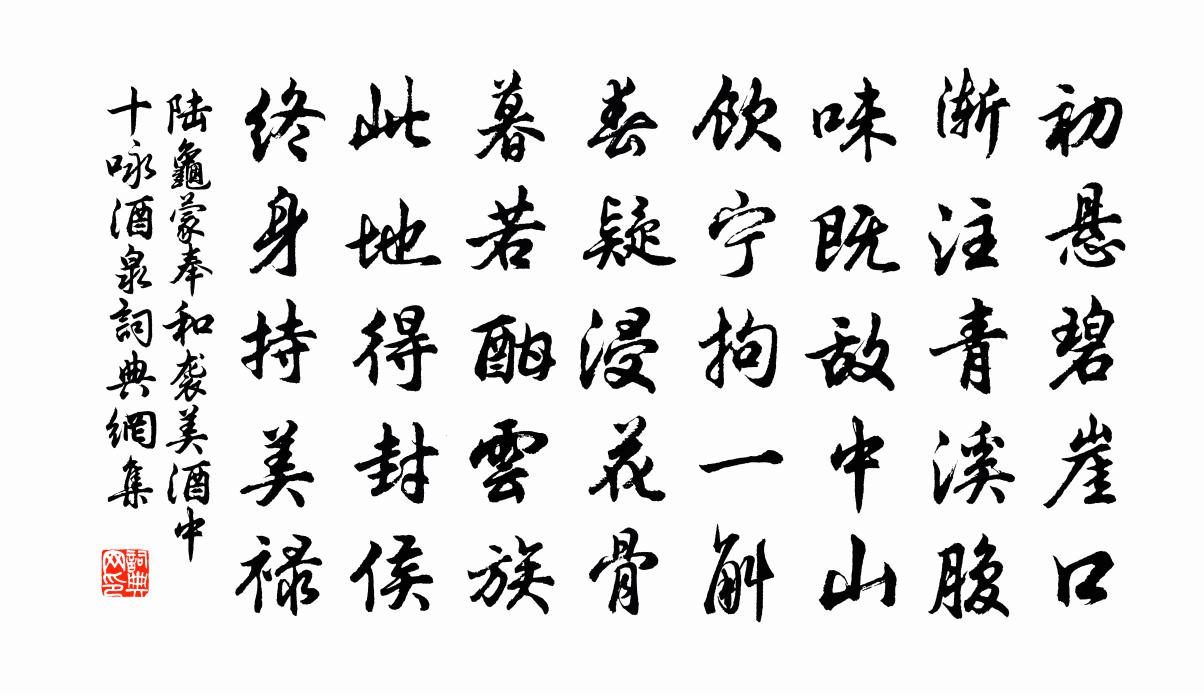 初悬碧崖口
渐注青溪腹
味既敌中山
饮宁拘一斛
春疑浸花骨
暮若酣雲族
此地得封侯
终身持美禄
陆龜蒙奉和袭美酒中
十咏酒泉詞典網集
詞典
网印